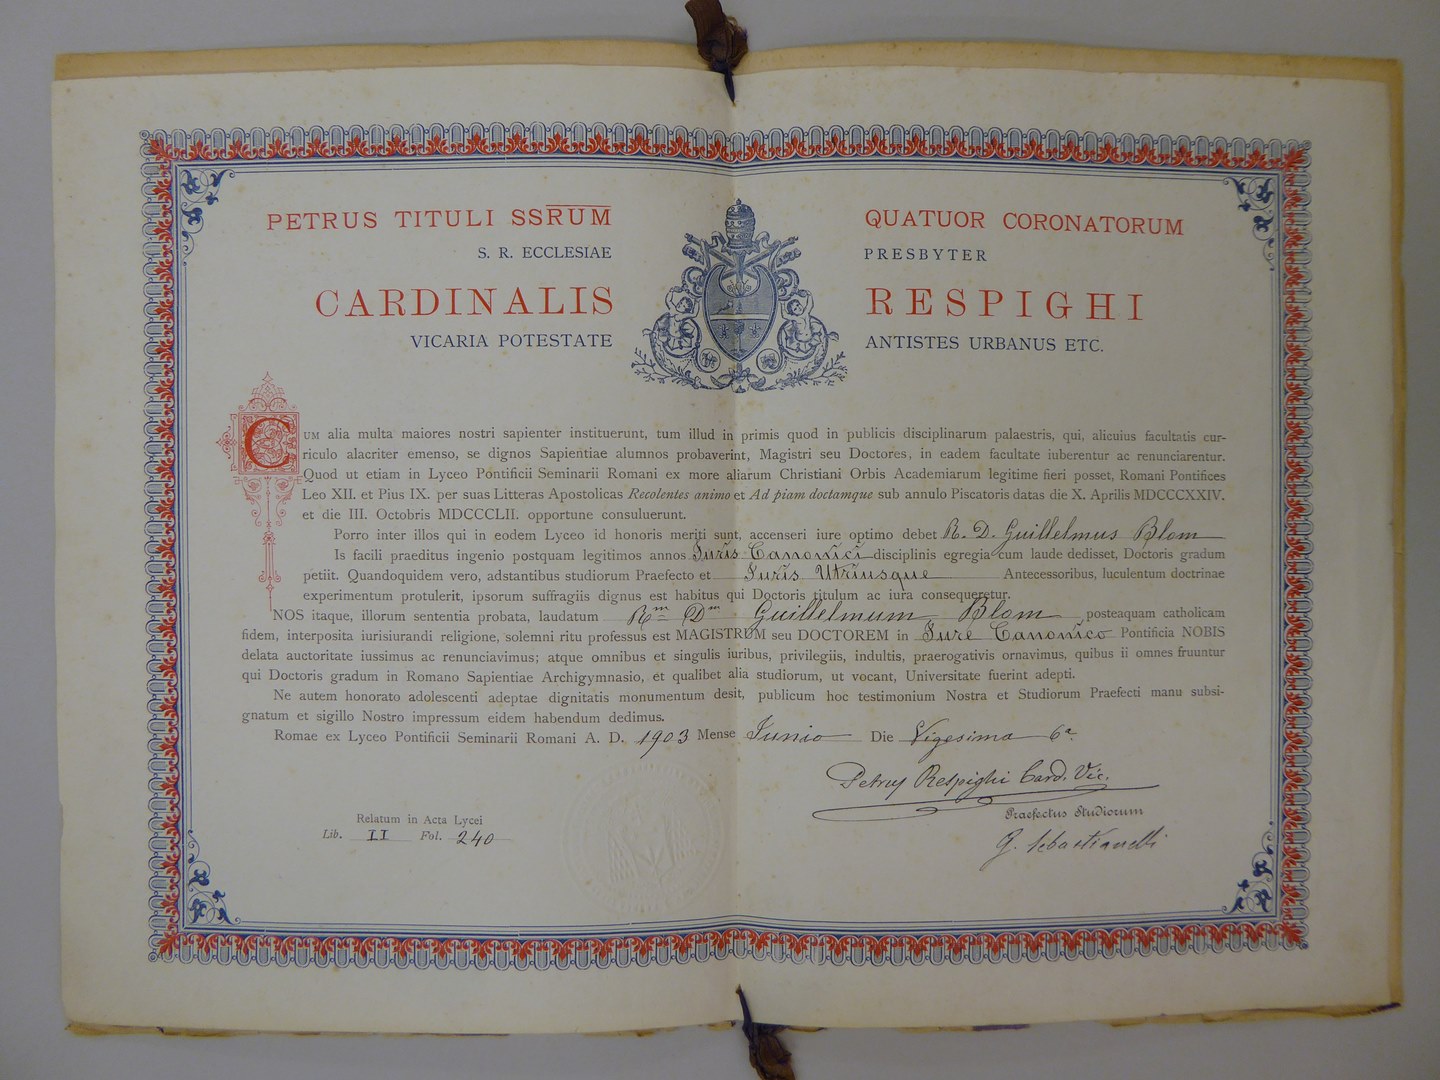 PETRUS TITULI SSRUM QUATUOR CORONATORUM
S. R. ECCLESIAE PRESBYTER
CARDINALIS RESPIGHI
VICARIA POTESTATE ANTISTES URBANUS ETC.
CUM alia multa maiores nostri sapienter instituerunt, tum illud in primis quod in publicis disciplinarum palaestris, qui, alicuius facultatis cur-
riculo alacriter emenso, se dignos Sapientiae alumnos probaverint, Magistri seu Doctores, in eadem facultate iuberentur ac renunciarentur.
Quod ut etiam in Lyceo Pontificii Seminarii Romani ex more aliarum Christiani Orbis Academiarum legitime fieri posset, Romani Pontifices
Leo XII. et Pius IX. per suas Litteras Apostolicas Recolentes animo et Ad piam doctamque sub annulo Piscatoris datas die X. Aprilis MDCCCXXIV.
et die III. Octobris MDCCCLII. opportune consuluerunt.
Porro inter illos qui in eodem Lyceo id honoris meriti sunt, accenseri iure optimo debet R. D. Guillelmus Blom
Is facili praeditus ingenio postquam legitimos annos Iuris Canonici disciplinis egregia cum laude dedisset, Doctoris gradum
petiit. Quandoquidem vero, adstantibus studiorum Praefecto et Iuris Utriusque Antecessoribus, luculentum doctrinae
experimentum protulerit, ipsorum suffragiis dignus est habitus qui Doctoris titulum ac iura consequeretur.
NOS itaque, illorum sententia probata, laudatum Rm Dm Guillelmum Blom posteaquam catholicam
fidem, interposita iurisiurandi religione, solemni ritu professus est MAGISTRUM seu DOCTOREM in Iure Canonico Pontificia NOBIS
delata auctoritate iussimus ac renunciavimus; atque omnibus et singulis iuribus, privilegiis, indultis, praerogativis ornavimus, quibus ii omnes fruuntur
qui Doctoris gradum in Romano Sapientiae Archigymnasio, et qualibet alia studiorum, ut vocant, Universitate fuerint adepti.
Ne autem honorato adolescenti adeptae dignitatis monumentum desit, publicum hoc testimonium Nostra et Studiorum Praefecti manu subsi-
gnatum et sigillo Nostro impressum eidem habendum dedimus.
Romae ex Lyceo Pontificii Seminarii Romani A. D. 1903 Mense Iunio Die Vigesima 6a
Petrus Respighi Card. Vic.
Praefectus Studiorum
G. Sebastianelli
Relatum in Acta Lycei
Lib. II Fol. 240